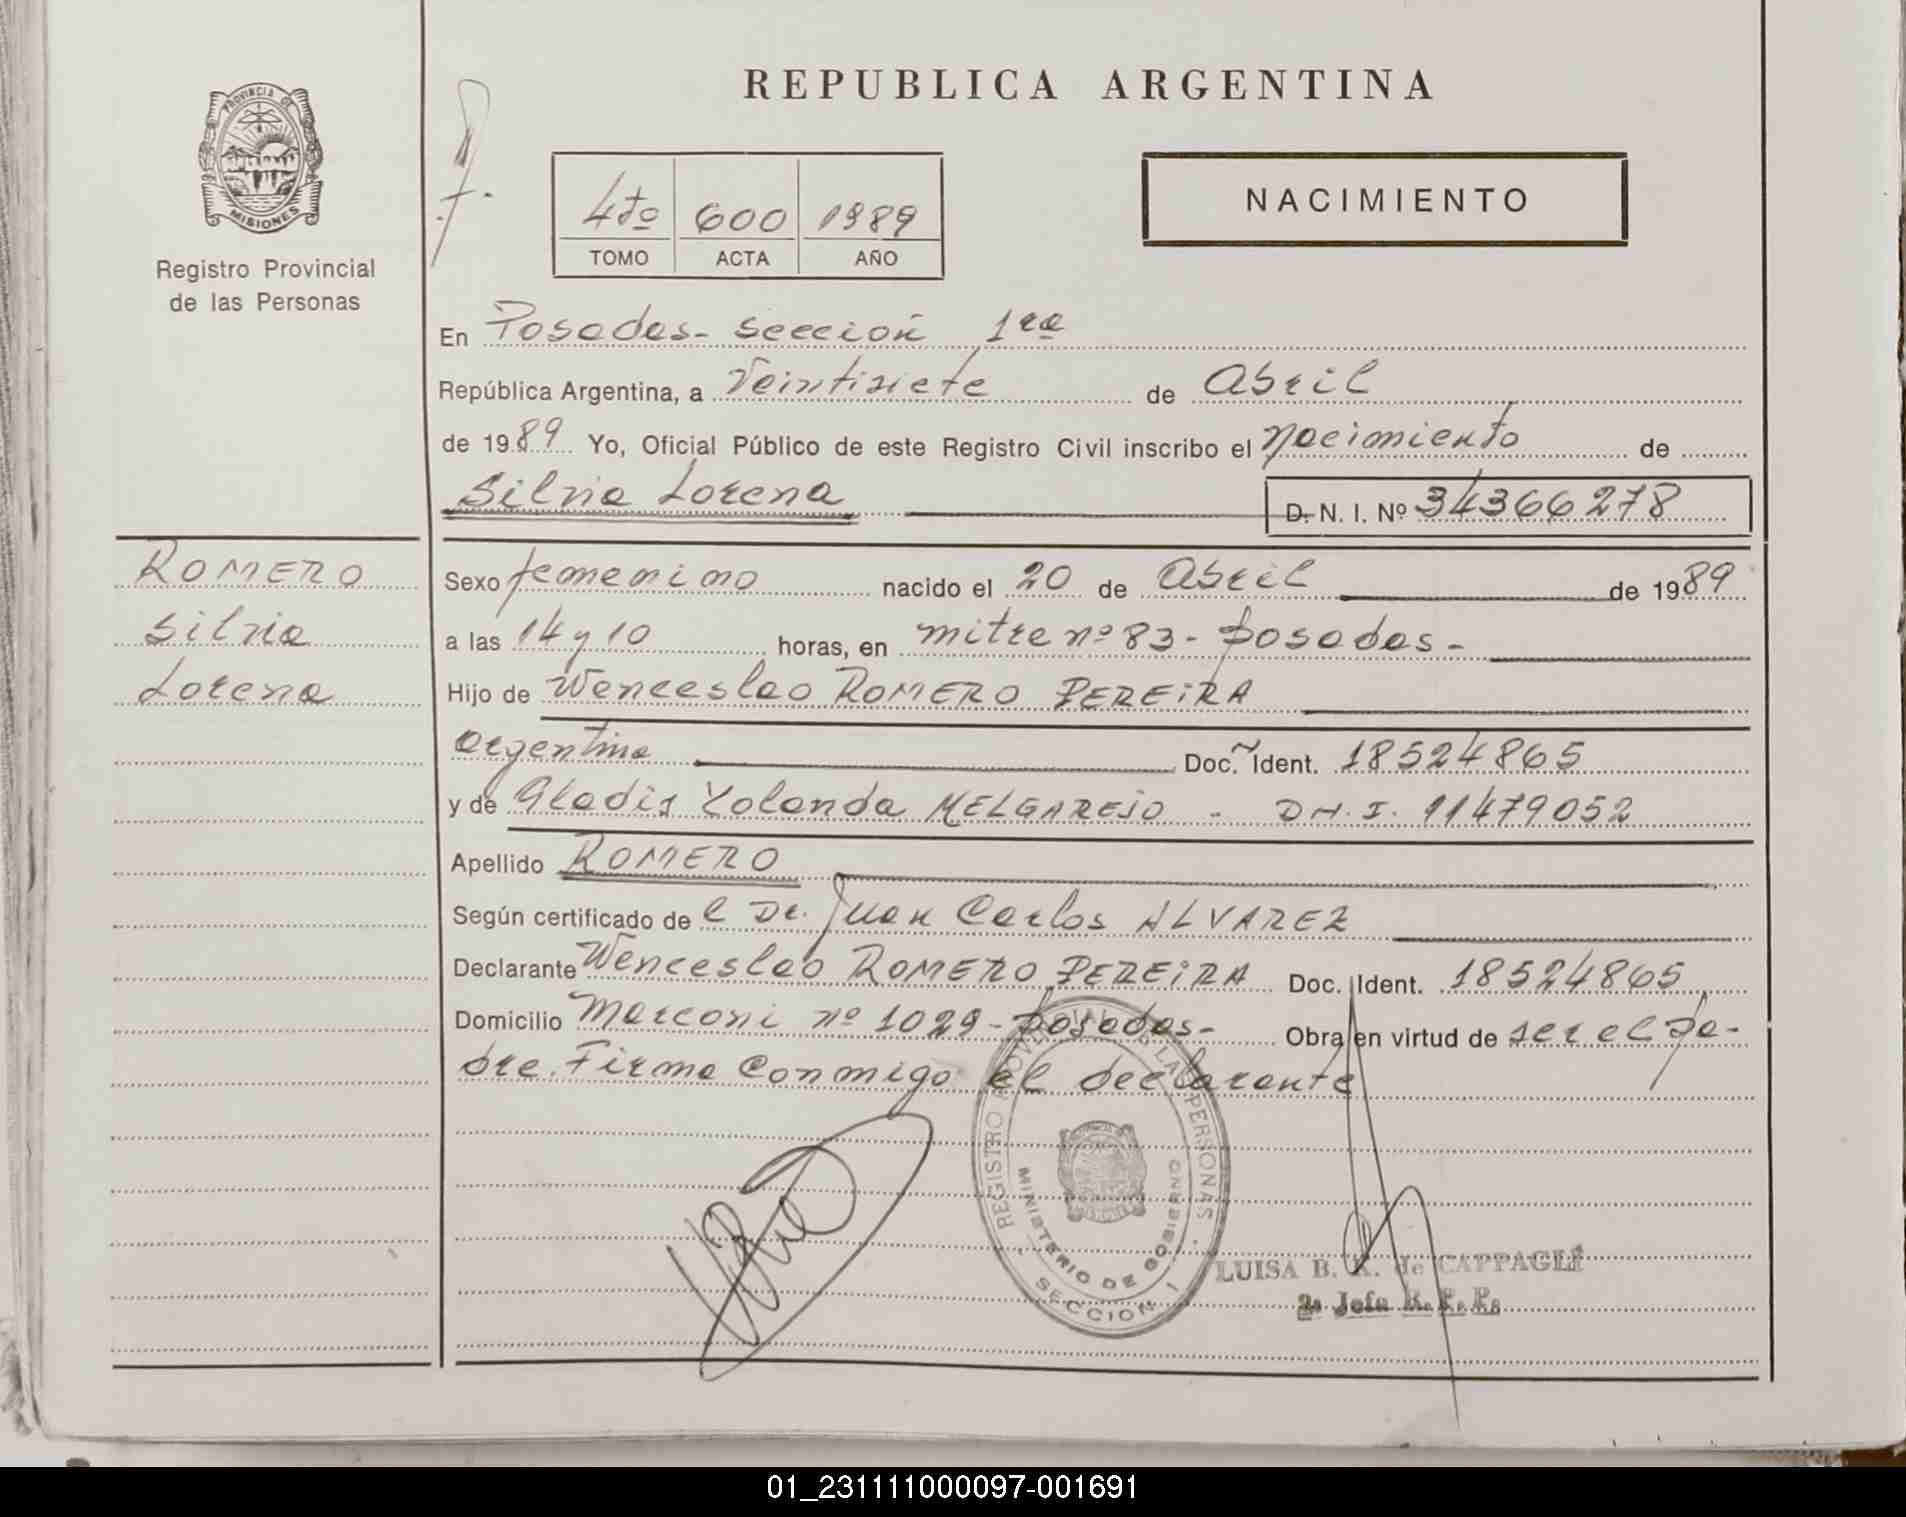 REPUBLICA ARGENTINA
PROVINCIA DE
MISIONES
Registro Provincial
de las Personas
4to 600 1989
TOMO ACTA AÑO
NACIMIENTO
En Posadas - Sección 1ra
República Argentina, a Veintisiete de Abril
de 1989 Yo, Oficial Público de este Registro Civil inscribo el nacimiento de
Silvia Lorena D. N. I. Nº 34366278
ROMERO
Silvia
Lorena
Sexo femenino nacido el 20 de Abril de 1989
a las 14 y 10 horas, en mitre nº 83 - posadas -
Hijo de Wenceslao ROMERO PEREiRA
argentino Doc. Ident. 18524865
y de Gladis Yolanda MELGAREJO - DN.I. 11479052
Apellido ROMERO
Según certificado de l Dr. Juan Carlos ALVAREZ
Declarante Wenceslao ROMERO PEREiRA Doc. Ident. 18524865
Domicilio Marconi nº 1029 - posadas - Obra en virtud de ser el pa-
dre. Firma conmigo el declarante
REGISTRO PROVINCIAL DE LAS PERSONAS
MINISTERIO DE GOBIERNO
SECCION 1
LUISA B. K. de CAPPAGLI
2a Jefa R. P. P.
01_231111000097-001691